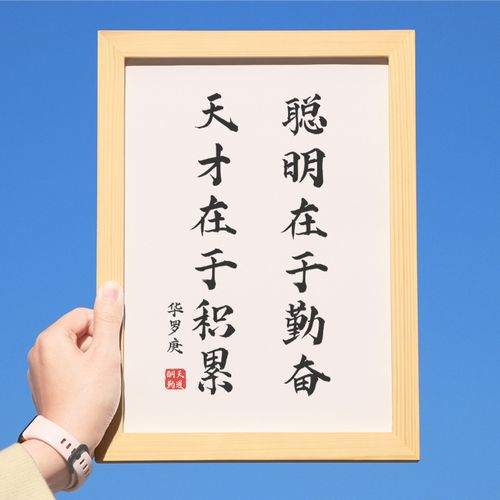 聪明在于勤奋
天才在于积累
华罗庚
天道酬勤